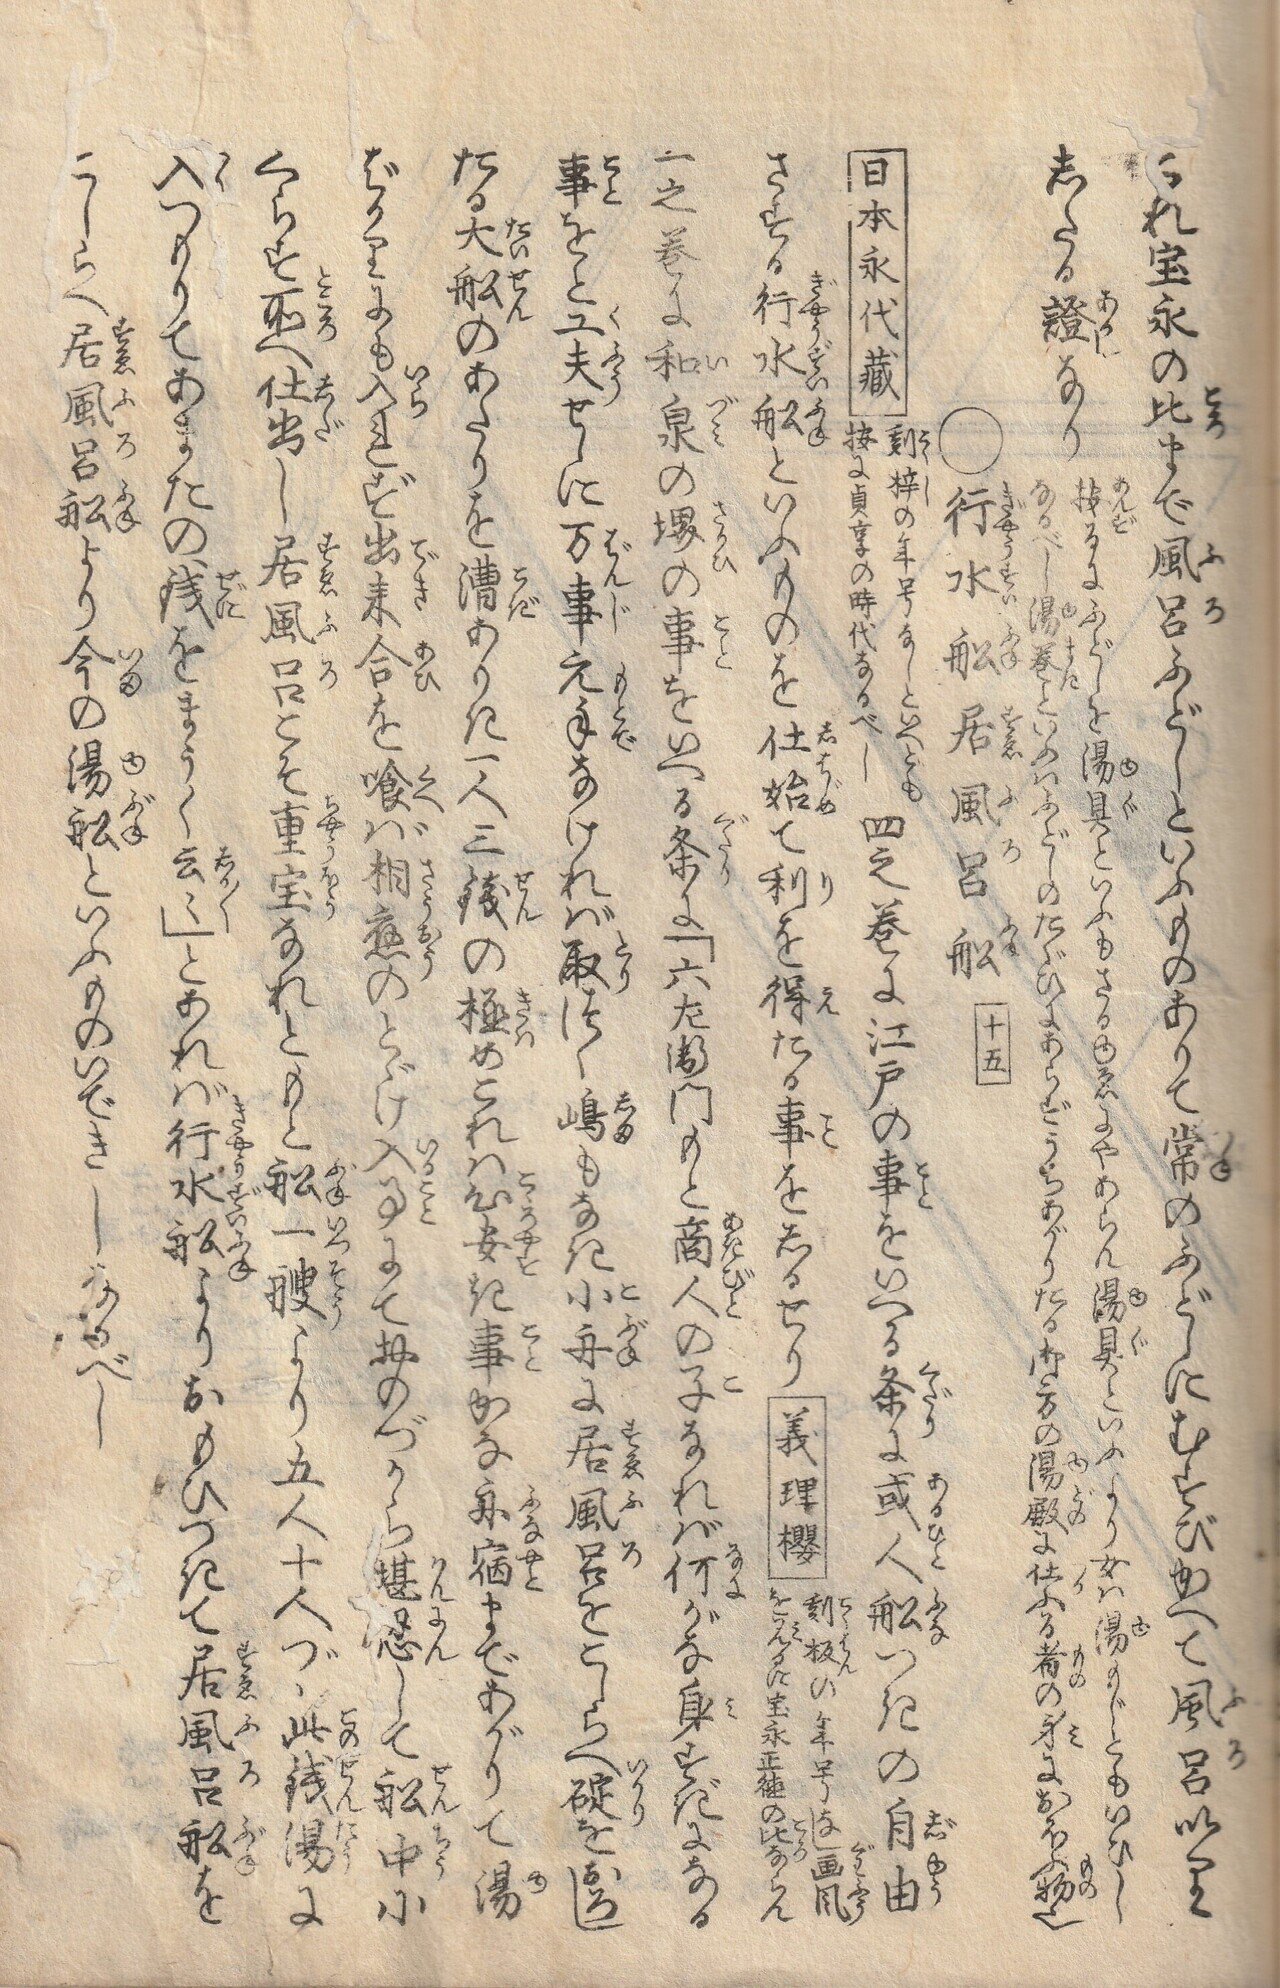 これ宝永の比まで風呂ふどしといふものありて常のふどしにむすびかへて風呂に入
したる證なり
按るにふどしを湯具といふもさるゆゑにやあらん湯具といふより女は湯もじともいひし
なるべし湯巻といふはふどしのたぐひにあらずうちあがりたる御方の湯殿に仕ふる者の身におほふ物也
○行水船居風呂船 十五
日本永代蔵
刻梓の年号なしといへども
按に貞享の時代なるべし
四之巻に江戸の事をいへる条に或人船つきの自由
さする行水船といふものを仕始て利を得たる事をしるせり
義理櫻
刻板の年号なし画風
をみるに宝永正徳の比ならん
一之巻に和泉の堺の事をいへる条に「六左衛門もと商人の子なれば何がな身すぎになる
事をと工夫せしに万事元手なければ取つく嶋もなき小舟に居風呂をこしらへ碇をおろし
たる大船のあたりを漕ありき一人三銭の極めこれは心安き事かな舟宿まであがりて湯
ばかりにも入れず出来合を喰ば相應のとゞけ入事にておのづから堪忍して船中に
くらす所へ仕出し居風呂こそ重宝なれともと船一艘より五人十人づゝ此銭湯に
入つもりてあまたの銭をまうく云々」とあれば行水船よりおもひつきて居風呂船を
こしらへ居風呂船より今の湯船といふものいできしなるべし